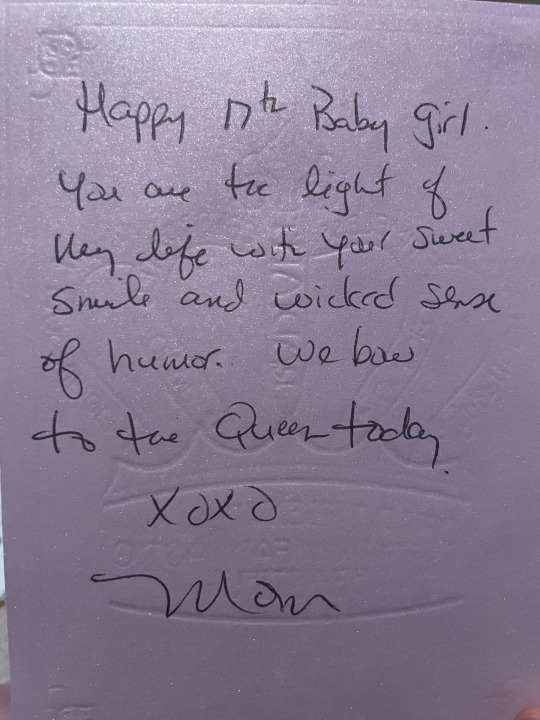 Happy 17th Baby girl.
You are the light of
my life with your sweet
smile and wicked sense
of humor. We bow
to the Queen today.
XOXO
Mom